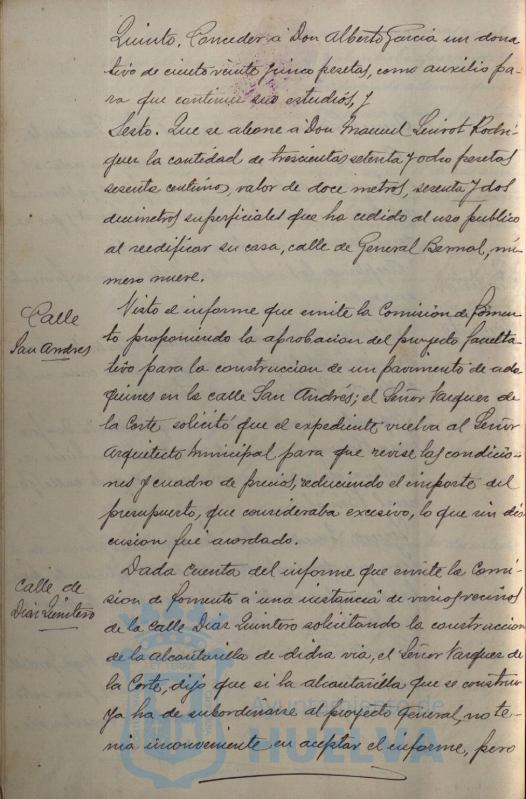 Quinto. Conceder á Don Alberto García un dona
tivo de ciento veinte y cinco pesetas, como auxilio pa-
ra que continue sus estudios, y
Sesto. Que se abone á Don Manuel Quirot Rodri-
guez la cantidad de trescientas setenta y ocho pesetas
sesenta centimos, valor de doce metros, sesenta y dos
decimetros superficiales que ha cedido al uso publico
al reedificar su casa, calle de General Bernal, nú-
mero nueve.
Calle
San Andres
Visto el informe que emite la Comisión de Fomen-
to proponiendo la aprobacion del proyecto faculta-
tivo para la construccion de un pavimento de ado-
quines en la calle San Andrés; el Señor Vazquez de
la Corte solicitó que el expediente vuelva al Señor
Arquitecto Municipal para que revise las condicio-
nes y cuadro de precios, reduciendo el importe del
presupuesto, que consideraba excesivo, lo que sin dis
cusion fué acordado.
calle de
Diaz Quintero
Dada cuenta del informe que emite la Comi-
sion de Fomento á una instancia de varios vecinos
de la calle Diaz Quintero solicitando la construccion
de la alcantarilla de dicha via, el Señor Vazquez de
la Corte, dijo que si la alcantarilla que se constru-
ya ha de subordinarse al proyecto general, no te-
nia inconveniente en aceptar el informe, pero
Ayuntamiento de
HUELVA